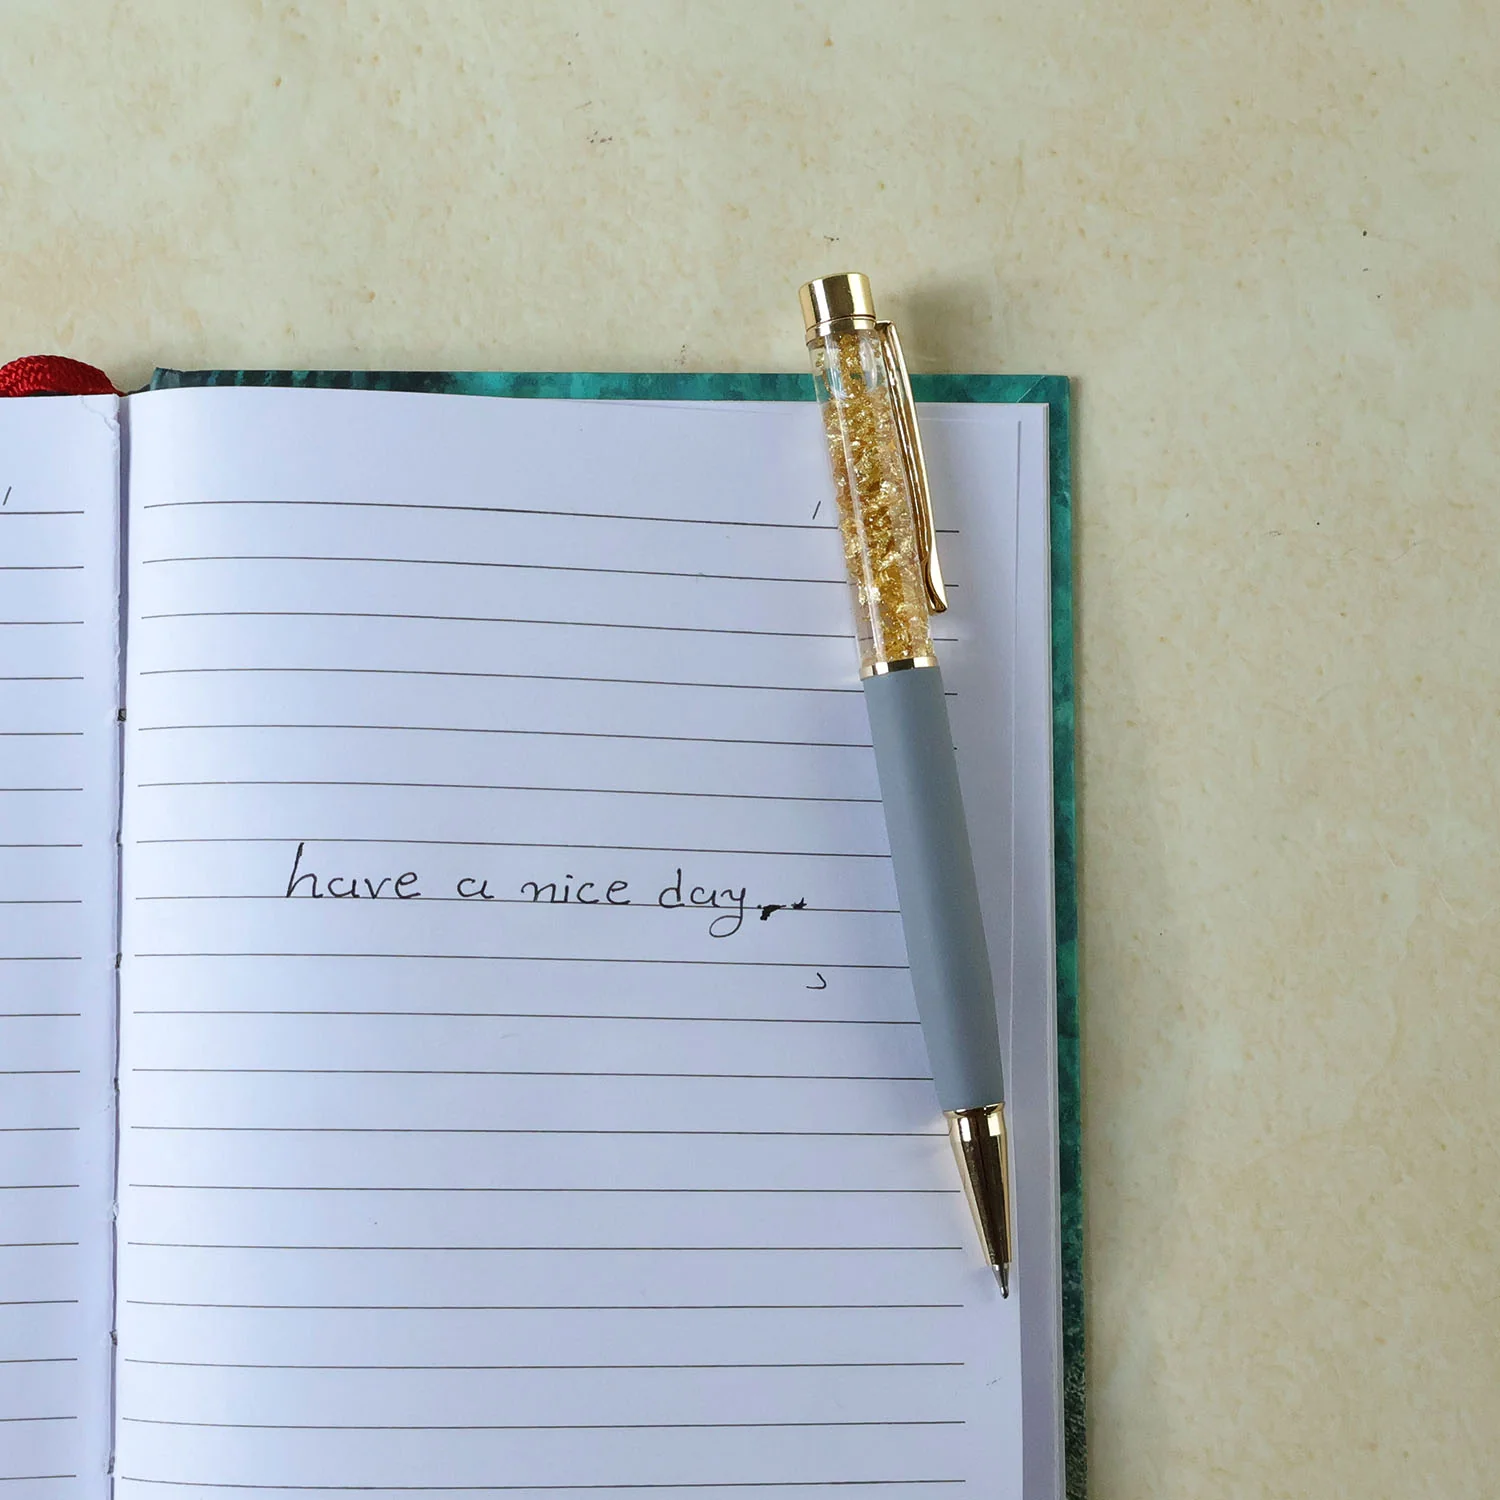 have a nice day..